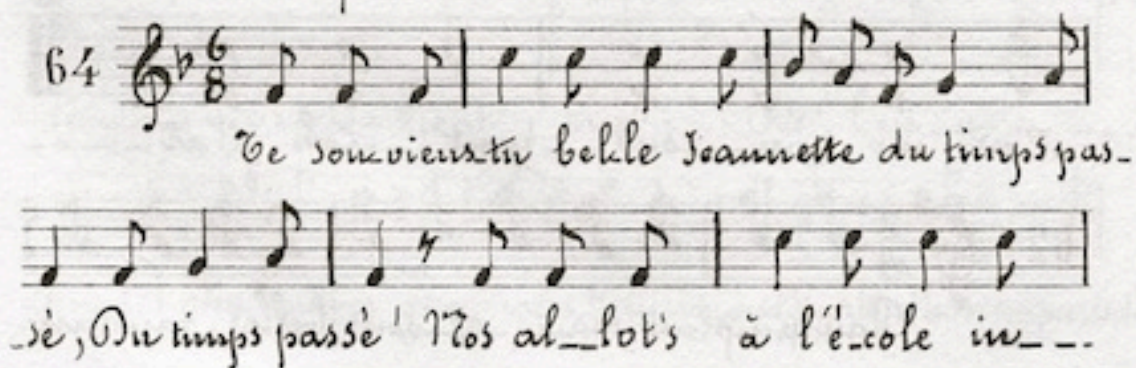 64 6 8
Te souviens-tu bel-le Jeannette du temps pas-
-sé, Du temps passé! Nos al--lots à l'école in---